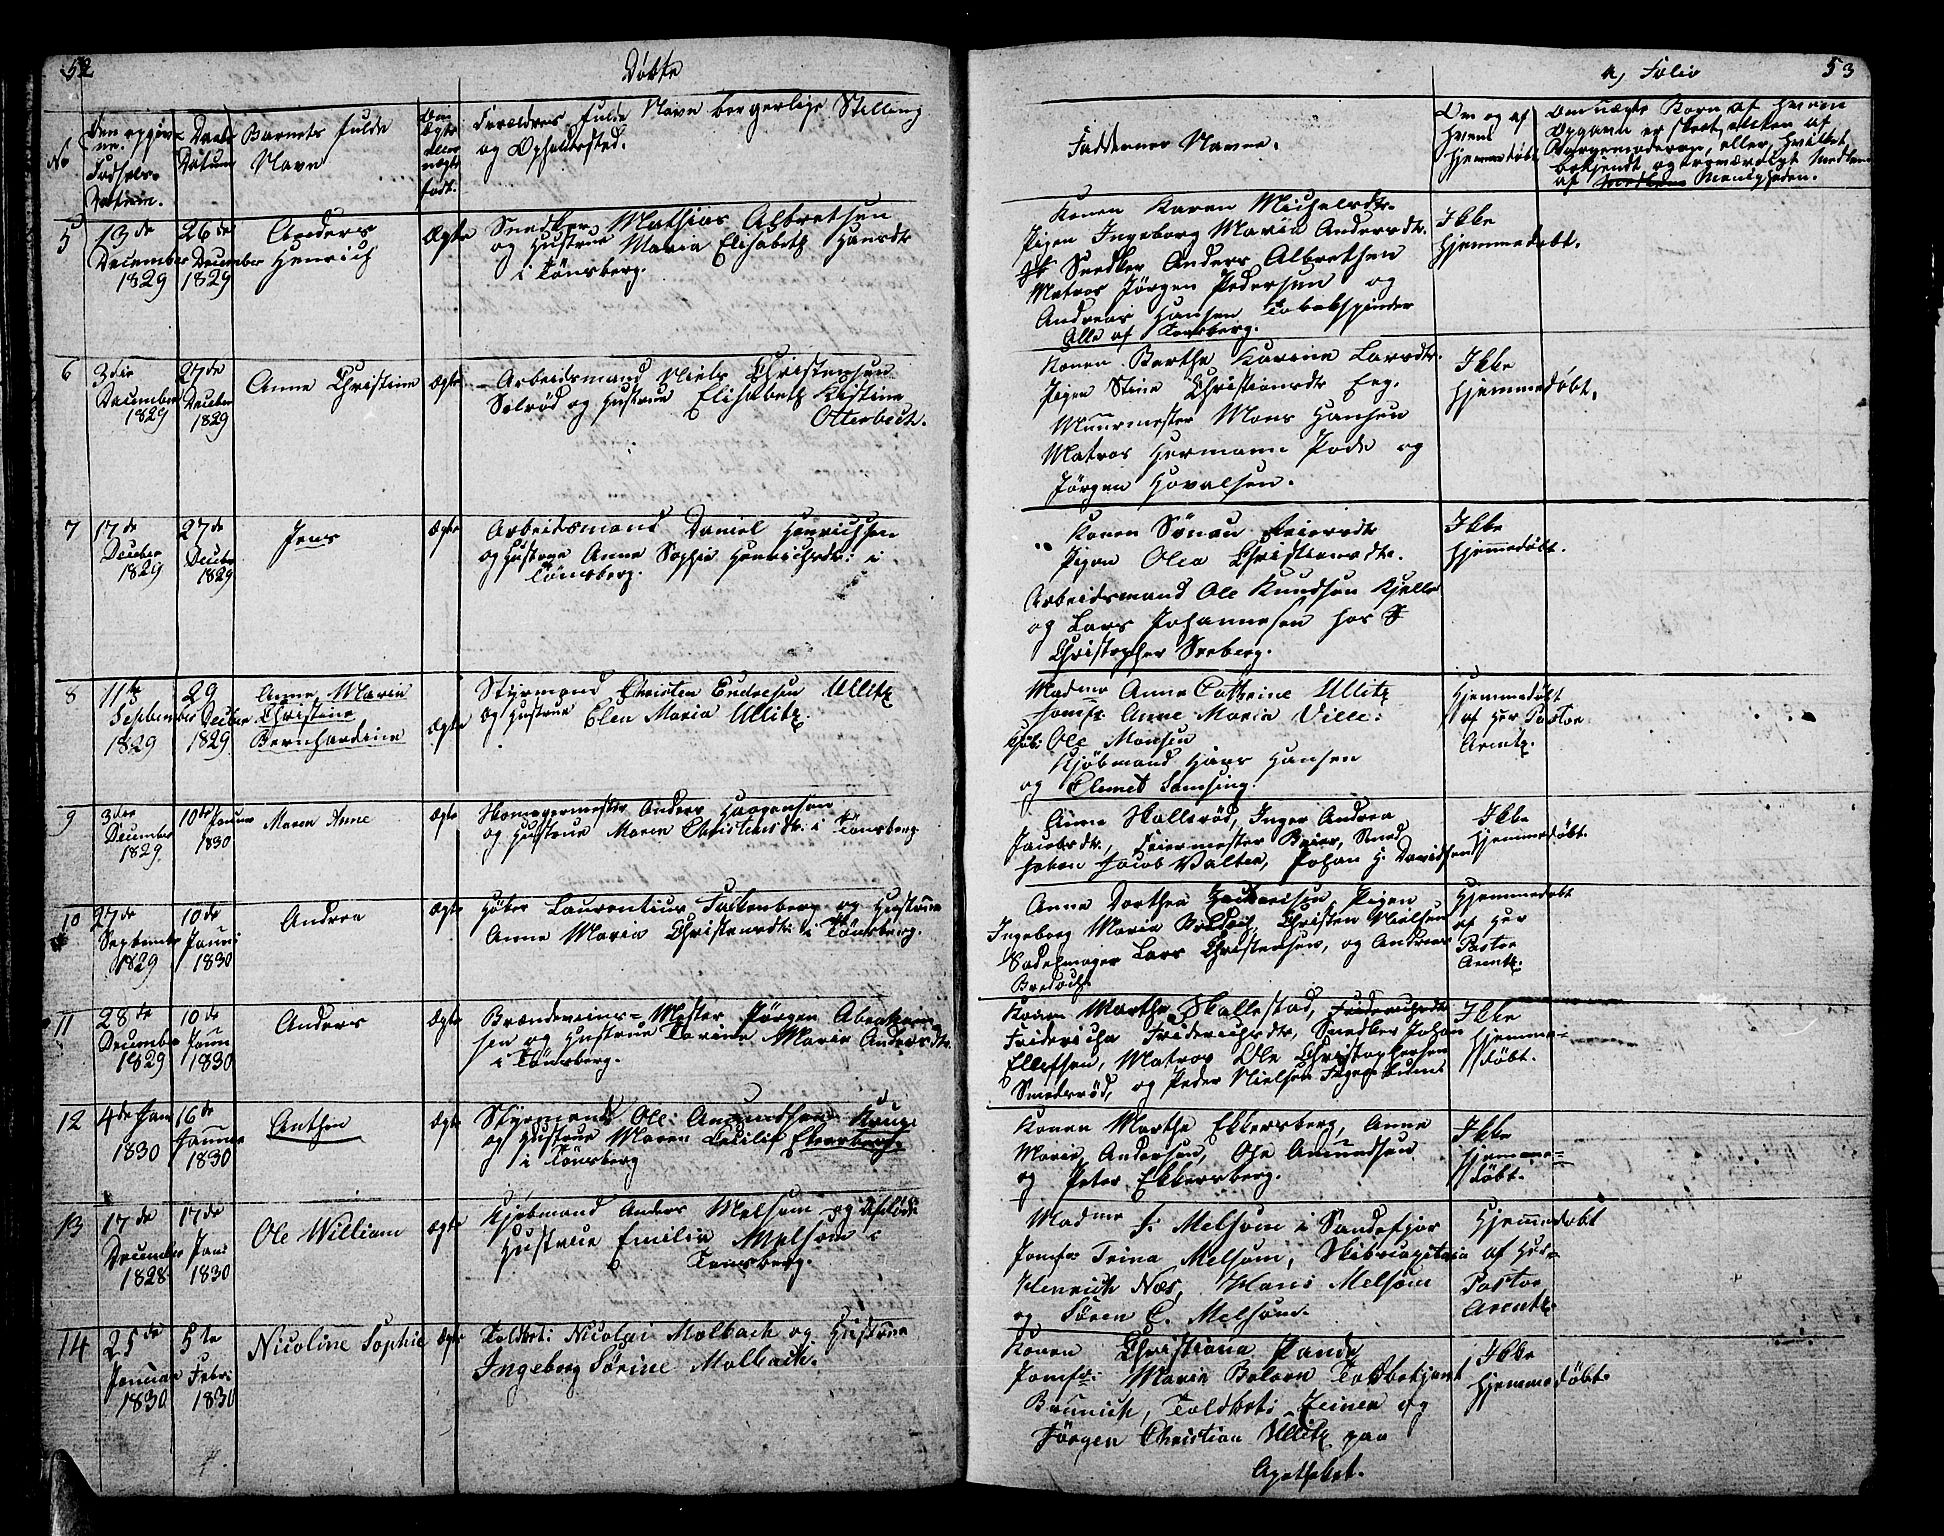 52
Døbte
No
Den opgiv-
ne Fødsels-
Datum.
Daabs
Datum
Barnets fulde
Navn
Om
Ægte
eller
uægte
født.
Forældres fulde Navn borgerlige Stilling
og Opholdssted.
5
13de
December
1829
26de
December
1829
Anders
Henrich
Ægte
Snedker Mathias Albretsen
og Hustrue Maria Elisabeth Hansdtr
i Tönsberg.
6
3die
December
1829
27de
Decbr
1829
Anne Christine
Ægte
Arbeidsmand Niels Christensen
Solrød og Hustrue Elisabeth Kistine
Otterbech.
7
17de
December
1829
27de
Decbr
1829
Jens
Ægte
Arbeidsmand Daniel Henrichsen
og Hustrue Anne Sophie Henrichsdtr: i
Tönsberg.
8
11te
September
1829
29
Decbr
1829
Anne Maria
Christine
Bernhardine
Ægte
Styrmand Christen Endresen Ullitz
og Hustrue Elen Maria Ullitz.
9
3die
December
1829
10de Januar
1830
Maren Anne
Ægte
Skomagermester Anders Haagensen
og Hustrue Maren Christensdtr: i Tönsberg
10
27de
September
1829
10de
Januar
1830
Andrea
Ægte
Høker Laurentius Falkenberg og Hustrue
Anne Maria Christensdtr: i Tönsberg.
11
28de
December
1829
10de
Janu
1830
Anders
Ægte
Brændeviins-Mester Jörgen Abraham
sen og Hustrue Karine Maria Andersdtr.
i Tönsberg.
12
4de Jan
1830
16de
Januar
1830
Anthon
Ægte
Styrmand Ole Amundsen Krug
og Hustrue Maren Cecilie Ekersberg
i Tönsberg
13
17de
December
1828
17de
Janr
1830
Ole William
Ægte
Kjøbmand Anders Melsom og afdøde
Hustrue Emilie Melsom i
Tönsberg.
14
25de
Januar
1830
5te
Febr:
1830
Nicoline Sophie
Ægte
Toldbet: Nicolai Molbach og Hustrue
Ingeborg Sörine Molbach.
a, Folio
53
Faddernes Navne.
Om og af
hvem
hjemmedøbt
Om uægte Børn, af hvem
Opgaven er skeet, enten af
Jordemoderen, eller, hvilket
bekjendt og troværdigt Medlem
af Menigheden.
Konen Karen Michelsdtr.
Pigen Ingeborg Maria Andersdtr.
Snedker Anders Albrethsen
Matros Jörgen Pedersen og
Andreas Hansen Tobakspinder
Alle af Tönsberg.
Ikke
hjemmedøbt.
Konen Berthe Karine Larsdtr.
Pigen Stine Christiansdtr Eeg.
Muurmester Mons Hansen
Matros Hermann Pode og
Jörgen Hovalsen.
Ikke
hjemmedøbt.
Konen
Pigen Olea Christiansdtr.
Arbeidsmand Ole Knudsen Kjelle
og Lars Johannesen hos
Christopher Seeberg.
Ikke
hjemmedøbt.
Madme Anne Cathrine Ullitz
Jomfr Anne Maria Ville:
Kjøb: Ole Monsen
Kjøbmand Hans Hansen
og Clemet Samsing.
Hjemmedøbt
af Hr Pastor
Arentz.
Anne Skallerød, Inger Andrea
Jacobsdtr., Feiermester Beier, Smed
Jacob Valter, Johan H. Davidsen
Ikke
hjemmedøbt.
Anne Dorthea Zachariesen, Pigen
Ingeborg Maria Christen Nielsen
Sadelmager Lars Christensen, og Andreas
Bredoch
Hjemmedøbt
af Hr
Pastor
Arentz.
Konen Marthe Skallestad,
Fridericha Friderichsdtr, Snedker Johan
Ellefsen, Matros Ole Christophersen
Smedsrød, og Peder Nielsen
Ikke
hjemme-
døbt.
Konen Marthe Ekkersberg, Anne
Marie Andersen, Ole Amundsen
og Peter Ekkersberg.
Ikke
hjemme-
døbt.
Madme F. Melsom i Sandefjor
Jomfr: Trina Melsom, Skibscapitain
Henrich Næs, Hans Melsom
og Sören C. Melsom.
Hjemmedøbt
af Hr:
Pastor
Arentz.
Konen Christiana Pande
Jomfr: Marie Bolsen Toldbetjent
Brunich, Toldbet: og
Jörgen Christian Ullitz paa
Apotheket.
Ikke
hjemmedøbt.